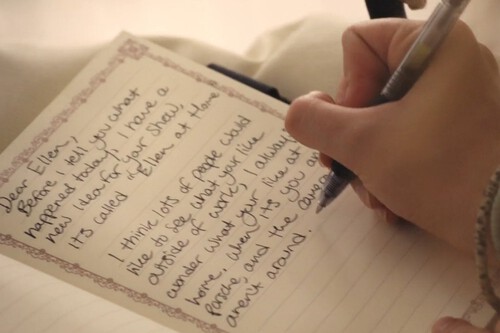 Dear Ellen,
Before I tell you what
happened today, I have a
new idea for your show,
it's called "Ellen at Home
I think lots of people would
like to see what your like
outside of work, I always
wonder what your like at
home, when it's you and
Porsche, and the cameras
aren't around.